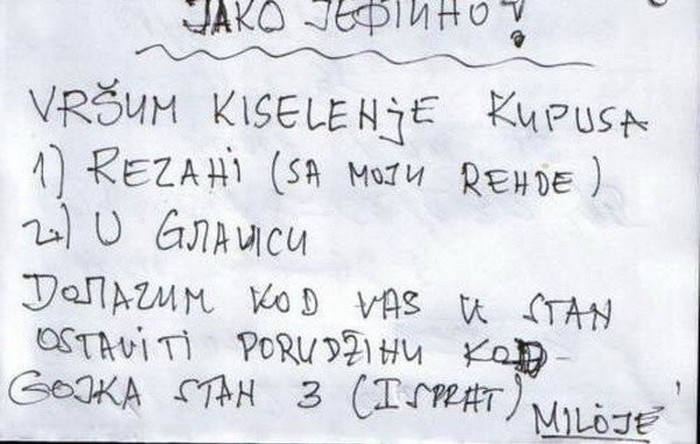 JAKO JEФTИHO!
VRŠUM KISELEHjE KUPUSA
1) REZAHi (SA MOJU REHDE)
2.) U GЛAVICU
DOЛAZUM KOD VAS U STAN
OSTAViTi PORUDŽIHU KOD
GOJKA STAN 3 (I SPRAT)
MILOJE